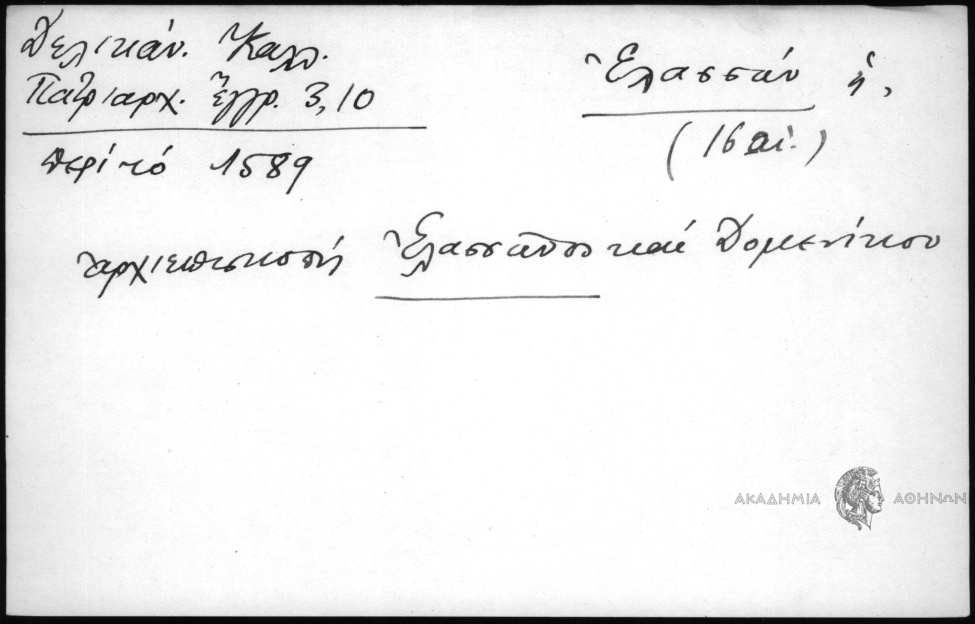 Δελικάν. Καλλ.
Πατριαρχ. Ἔγγρ. 3,10
περί τό 1589
Ἐλασσών ἡ,
(16 αἰ.)
ἀρχιεπισκοπή Ἐλασσῶνος καί Δομενίκου
ΑΚΑΔΗΜΙΑ ΑΘΗΝΩΝ